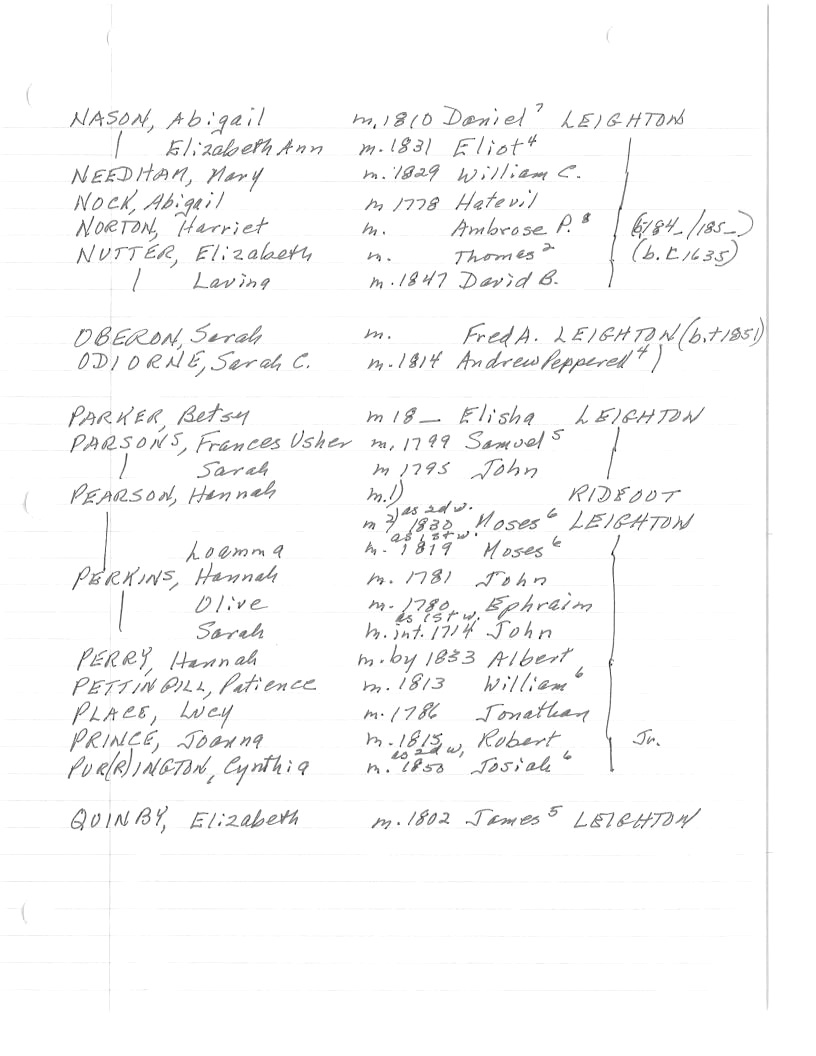 NASON, Abigail m. 1810 Daniel⁷ LEIGHTON
| Elizabeth Ann m. 1831 Eliot⁴
NEEDHAM, Mary m. 1829 William C.
NOCK, Abigail m 1778 Hatevil
NORTON, Harriet m. Ambrose P.⁸ (b/184_/185_)
NUTTER, Elizabeth m. Thomas² (b. c 1635)
| Lavina m. 1847 David B.
OBERON, Sarah m. Fred A. LEIGHTON (b. + 1851)
ODIORNE, Sarah C. m. 1814 Andrew Pepperell⁴)
PARKER, Betsy m 18_ Elisha LEIGHTON
PARSONS, Frances Usher m. 1799 Samuel⁵
| Sarah m 1795 John
PEARSON, Hannah m. 1) RIDEOUT
m 2) as 2d w. 1830 Moses⁶ LEIGHTON
Loamma m. as 1st w. 1819 Moses⁶
PERKINS, Hannah m. 1781 John
| Olive m. 1780 Ephraim
Sarah as 1st w. m. int. 1714 John
PERRY, Hannah m. by 1833 Albert
PETTINGILL, Patience m. 1813 William⁶
PLACE, Lucy m. 1786 Jonathan
PRINCE, Joanna m. 1815 Robert Jr.
PUR(R)INGTON, Cynthia m. as 2d w, 1850 Josiah⁶
QUINBY, Elizabeth m. 1802 James⁵ LEIGHTON